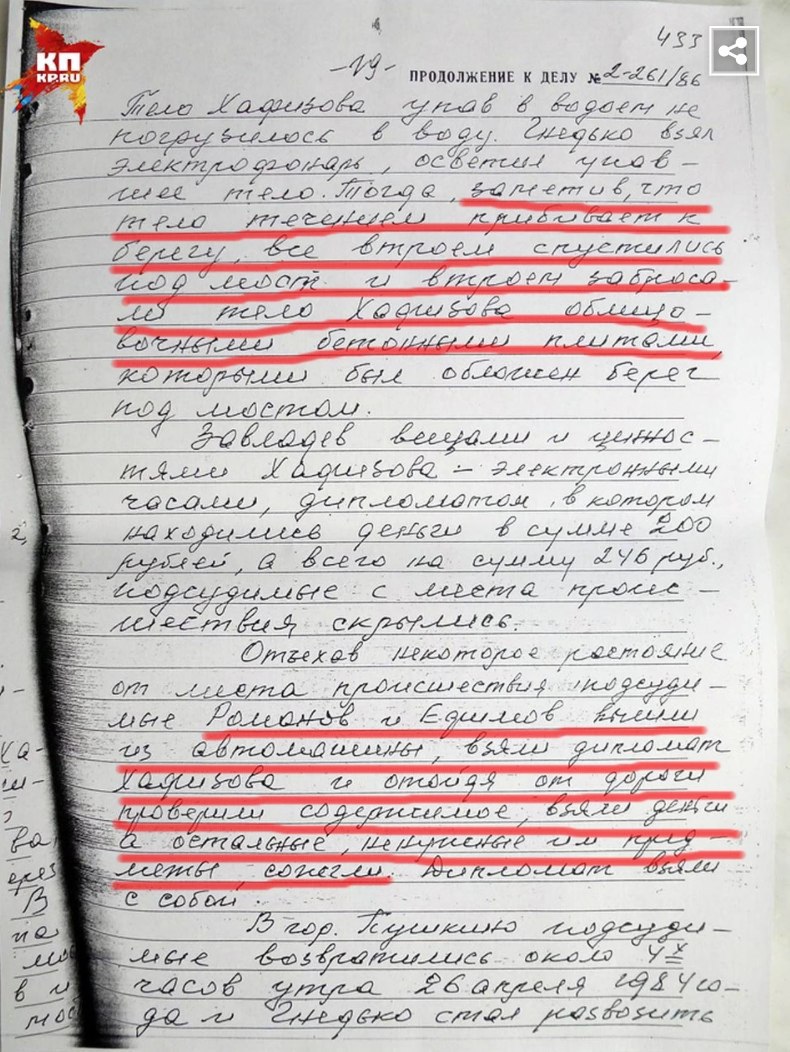 КП
KP.RU
433
-19- ПРОДОЛЖЕНИЕ К ДЕЛУ № 2-261/86
Тело Хафизова упав в водоем не
погрузилось в воду. Гнедько взял
электрофонарь, осветил упав-
шее тело. Тогда, заметив, что
тело течением прибивает к
берегу, все втроем спустились
под мост и втроем заброса-
ли тело Хафизова облицо-
вочными бетонными плитами,
которыми был обложен берег
под мостом.
Завладев вещами и ценнос-
тями Хафизова - электронными
часами, дипломатом, в котором
находились деньги в сумме 200
рублей, а всего на сумму 246 руб.,
подсудимые с места проис-
шествия скрылись.
Отъехав некоторое растояние
от места происшествия подсуди-
мые Романов и Ефимов вышли
из автомашины, взяли дипломат
Хафизова и отойдя от дороги
проверили содержимое, взяли деньги
а остальные, ненужные им пред-
меты, сожгли. Дипломат взяли
с собой.
В гор. Пушкино подсуди-
мые возвратились около 4х
часов утра 26 апреля 1984 го-
да и Гнедько стал развозить
2,
Ха-
ва
ерез
В
на
в и